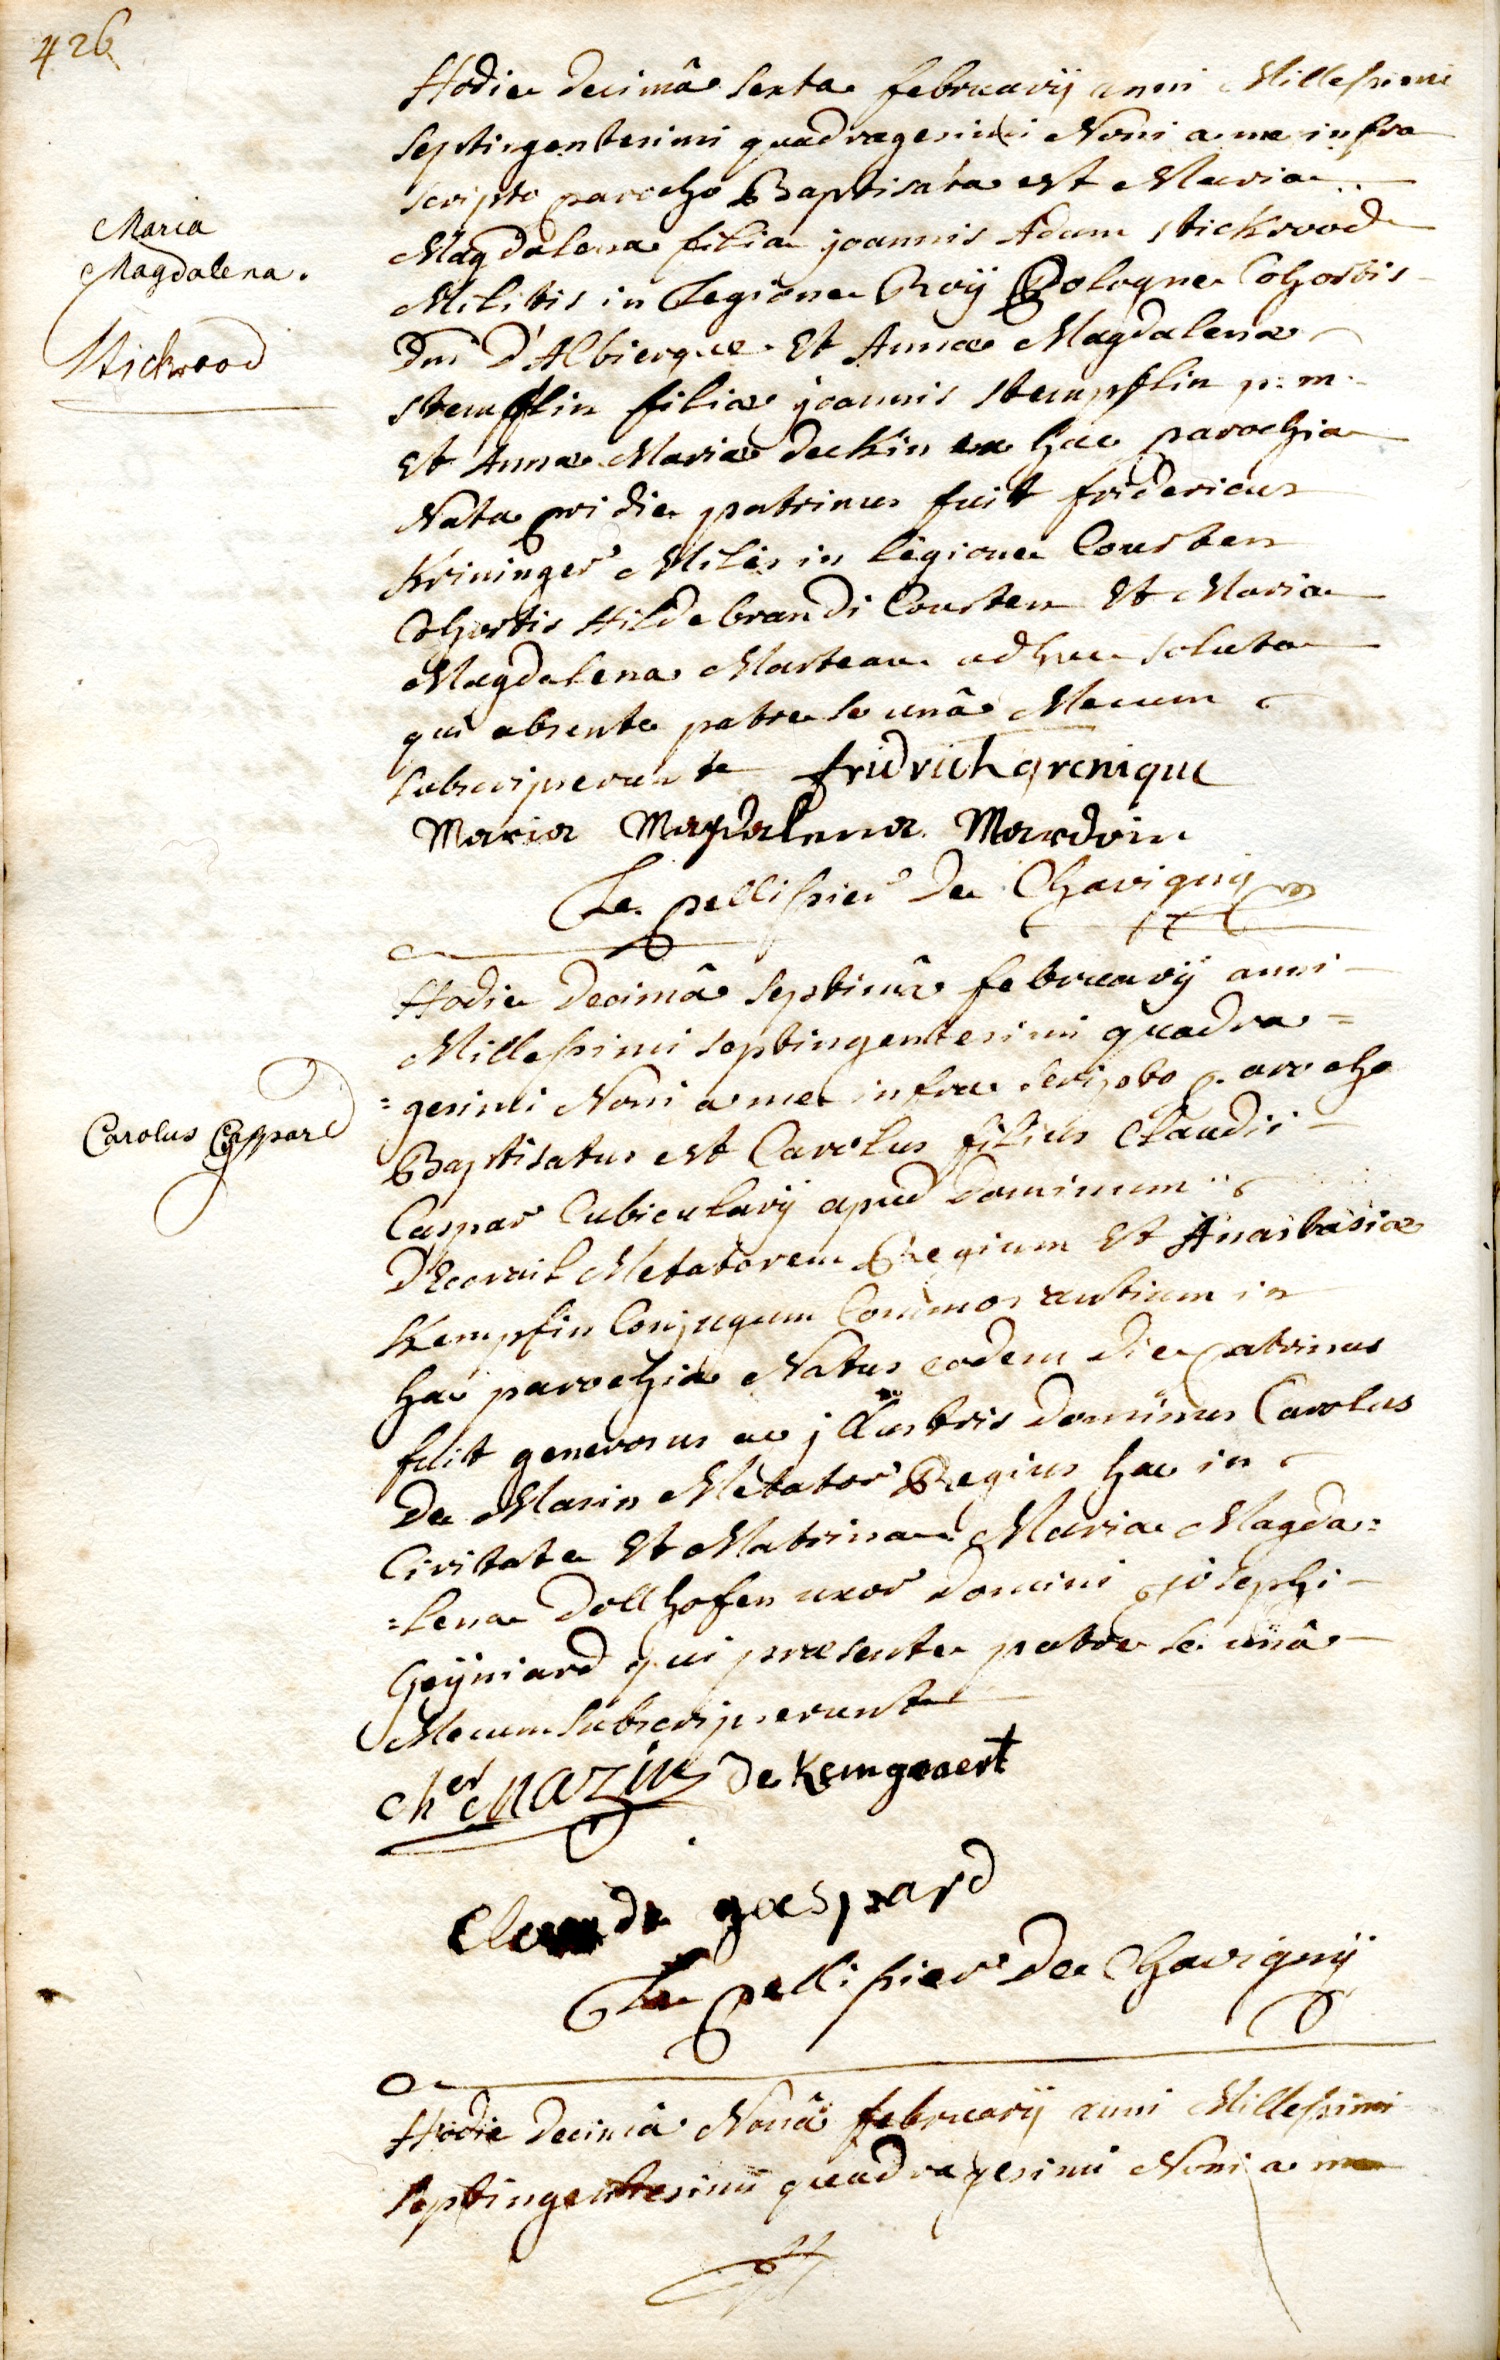 426
Hodie decimâ sexta februarij anni Millessimi
septingentesimi quadragesimi Noni a me infra
scripto parocho Baptisata est Maria
Maria
Magdalena.
Stickwood
Magdalena filia joannis Adam stickwood
Militis in Legione Roij Pologne Cohortis
Dni D'Albiergue Et Annæ Magdalenæ
stempflin filiæ joannis stempflin p. m.
Et Annæ Mariæ deckin ex hac parochia
Nata pridie patrinus fuit fridericus
Krininger Miles in legione Courten
Cohortis Hildebrandi Courten Et Maria
Magdalena Marteau adhuc soluta
qui absente patre se unâ Mecum
subscripserunt fridrich grenique
Maria Magdalena Mardoin
Le pellissier de Chavignij
Hodie decimâ septimâ februarij anni
Millessimi septingentesimi quadra=
=gesimi Noni a me infra scripto parocho
Carolus Caspard
Baptisatus est Carolus filius Claudii
Caspar Cubicularij apud dominum
D'Ecorail Metatorem Regium Et Anastasiæ
Kempfin Conjugum Commorantium in
hac parochia Natus eodem die patrinus
fuit generosus ac jllustris dominus Carolus
de Masin Metator Regius hac in
Civitate Et Matrina Maria Magda=
=lena dollhofen uxor domini josephi
Geijniard qui præsente patre se unâ
Mecum subscripserunt
Cher Mazin de Kemgeaert
Claude gaspard
Le pellissier de Chavignij
Hodie decimâ Nonâ februarij anni Millessimi
septingentesimi quadragesimi Noni a me